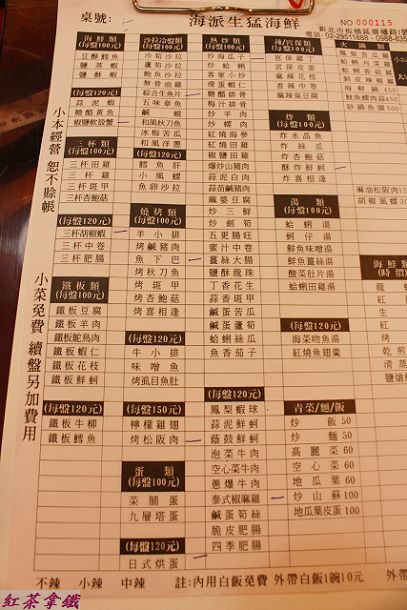 桌號:
海派生猛海鮮
NO 000115
新北市板橋區
電話:02-29511888 · 0988-835
小本經營 恕不賒帳
小菜免費 續盤另加費用
海鮮類
(每盤100元)
豆酥鱈魚
鹽蒸蝦
鹽酥蝦
(每盤120元)
蒜泥蝦
糖醋黃魚
椒鹽軟殼蟹
三杯類
(每盤100元)
三杯田雞
三杯雞
三杯斑甲
三杯杏鮑菇
(每盤120元)
三杯胡椒蝦
三杯中卷
三杯肥腸
鐵板類
(每盤100元)
鐵板豆腐
鐵板羊肉
鐵板鴕鳥肉
鐵板蝦仁
鐵板花枝
鐵板鮮蚵
(每盤120元)
鐵板牛柳
鐵板鱈魚
沙拉冷盤類
(每盤100元)
冷筍沙拉
蘆筍沙拉
鮑魚沙拉
無骨油雞
綜合生魚片
五味章魚
鹹蜆
和風秋刀魚
冰梅苦瓜
和風洋蔥
(每盤120元)
鱈魚肝
小風螺
魚卵沙拉
燒烤類
(每盤100元)
羊小排
烤鹹豬肉
魚下巴
烤秋刀魚
烤斑甲
烤杏鮑菇
烤喜相逢
(每盤120元)
牛小排
味噌魚
烤虱目魚肚
(每盤150元)
檸檬雞翅
烤松阪肉
蛋類
(每盤100元)
菜脯蛋
九層塔蛋
(每盤120元)
日式烘蛋
熱炒類
(每盤100元)
炒蛤蜊
客家小炒
滑蛋蝦仁
糖醋排骨
梅汁排骨
炒蜆
炒羊肉
炒螺肉
紅燒海參
紅燒田雞
椒鹽田雞
爆炒山豬肉
蒜泥白肉
蒜苗鹹豬肉
麻婆豆腐
炒三鮮
炒劍筍
五更腸旺
蜜汁中卷
薑絲大腸
鹽酥龍珠
丁香花生
蒜香斑甲
鹹蛋苦瓜
鹹蛋蘆筍
蛤蜊絲瓜
魚香茄子
(每盤120元)
鳳梨蝦球
蒜泥鮮蚵
蔭鼓鮮蚵
泡菜牛肉
空心菜牛肉
蔥爆牛肉
泰式椒麻雞
鹹蛋筍絲
脆皮肥腸
四季肥腸
辣/宮保類
(每盤100元)
宮保雞丁
宮保皮蛋
麻辣花枝
香辣中卷
麻辣臭豆腐
炸類
(每盤100元)
炸水晶魚
炸絲瓜
炸杏鮑菇
酥炸鮮蚵
炸喜相逢
湯類
(每盤100元)
蛤蜊湯
蚵仔湯
鮮魚味噌湯
鮮魚薑絲湯
酸菜肚片湯
蛤蜊田雞湯
(每盤120元)
海菜吻魚湯
紅燒魚翅羹
青菜/麵/飯
炒飯50
炒麵50
高麗菜60
空心菜60
地瓜葉60
炒山蘇100
地瓜葉皮蛋100
火鍋類
麻油松阪肉
胡椒鳳
海鮮類
(時價)
不辣 小辣 中辣 註:內用白飯免費 外帶白飯1碗10元
紅茶拿鐵